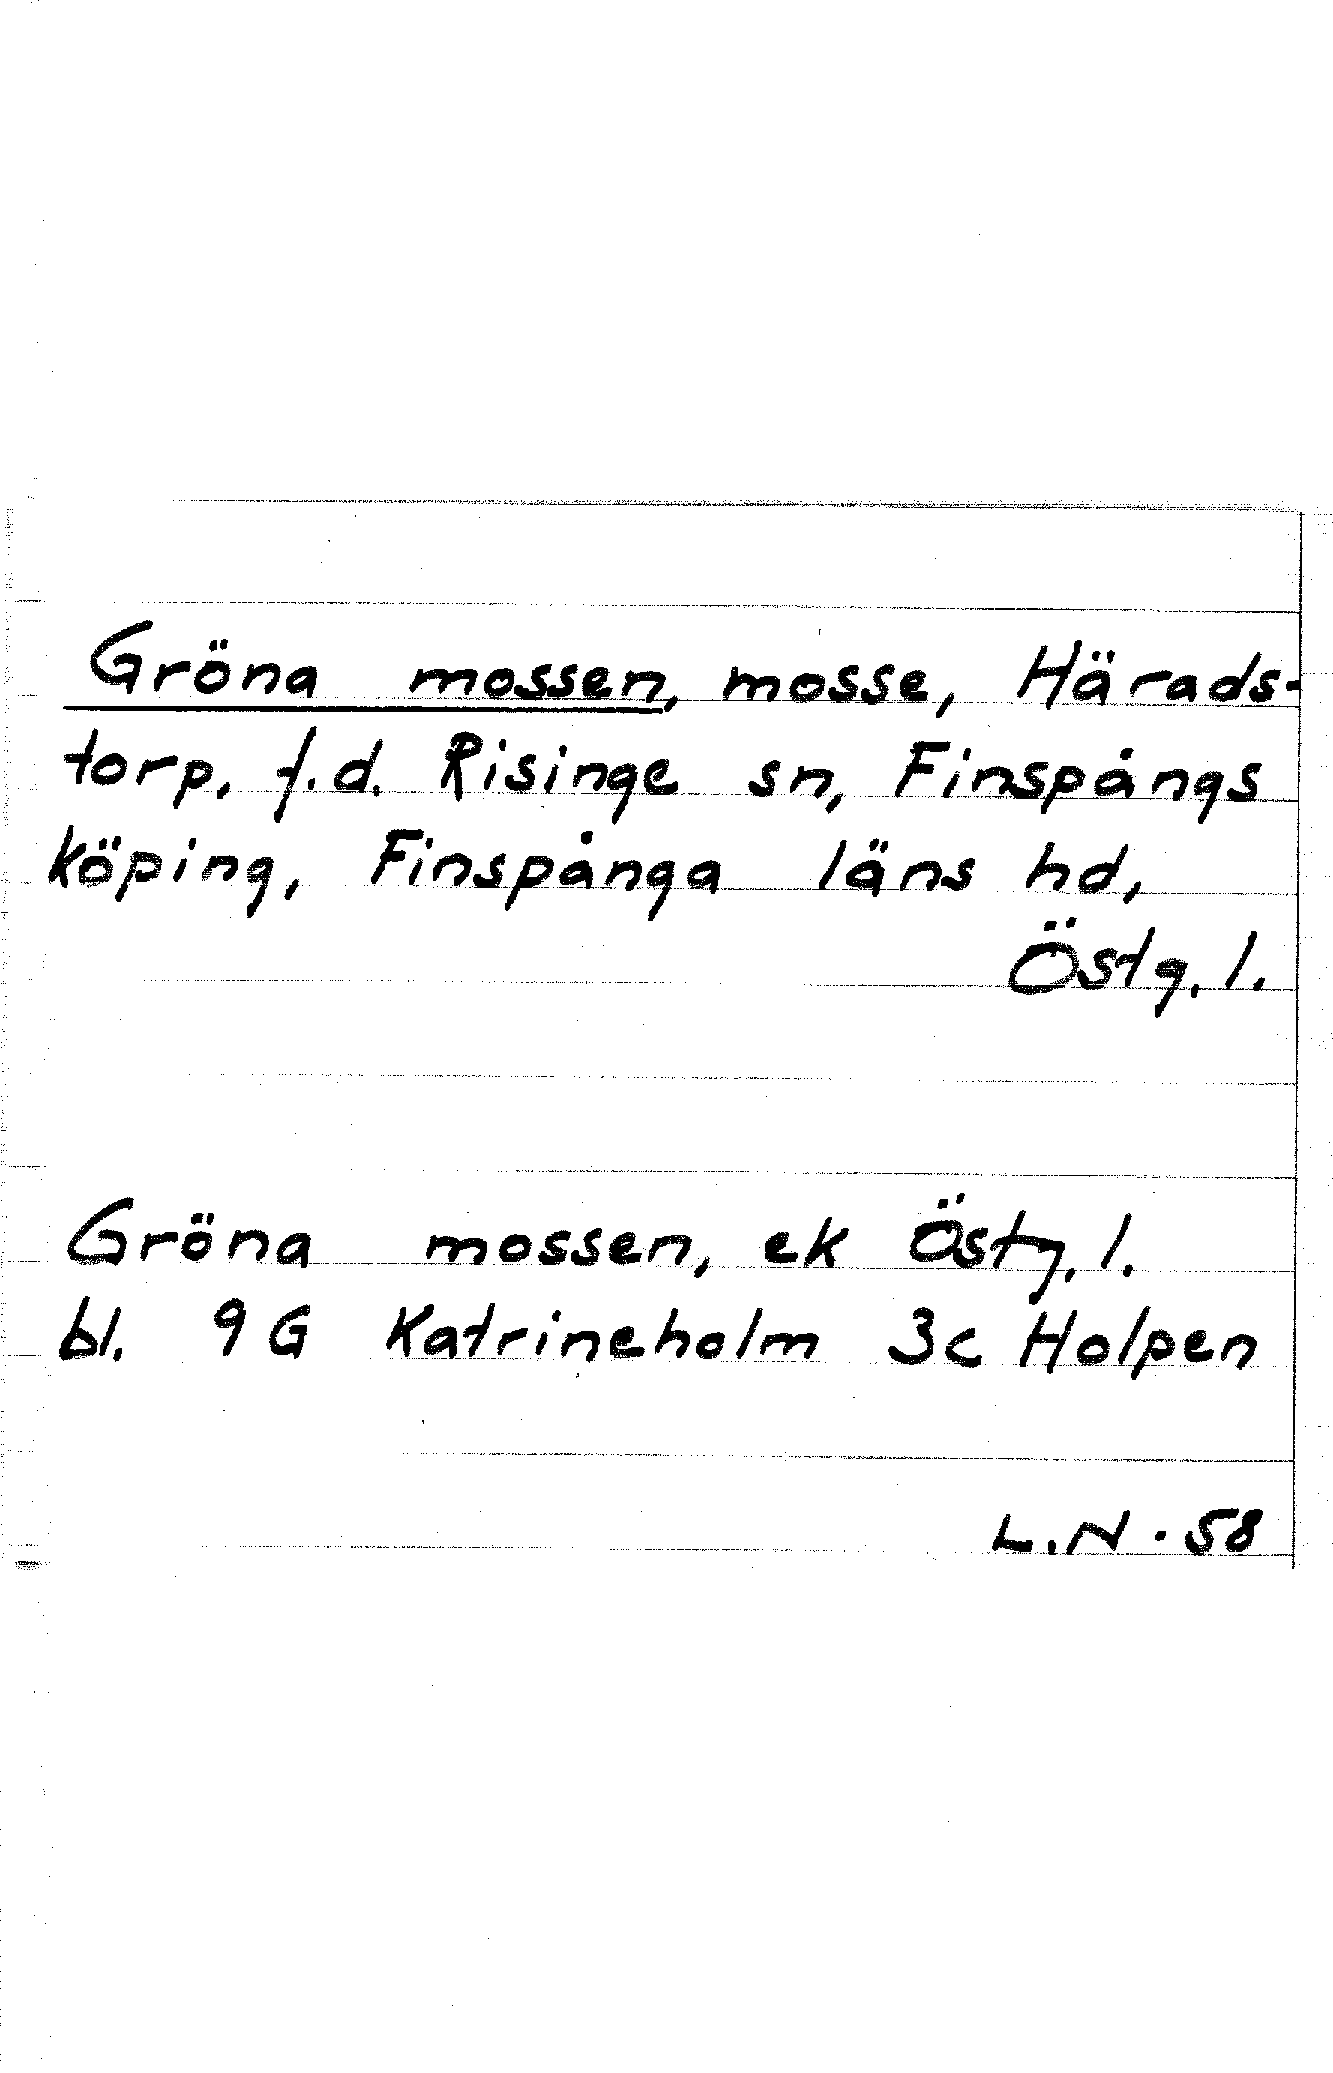 Gröna mossen, mosse, Härads-
torp, f.d. Risinge sn, Finspångs
köping, Finspånga läns hd,
Östg. l.
Gröna mossen, ek Östg. l.
bl. 9 G Katrineholm 3c Holpen
L.N. 58